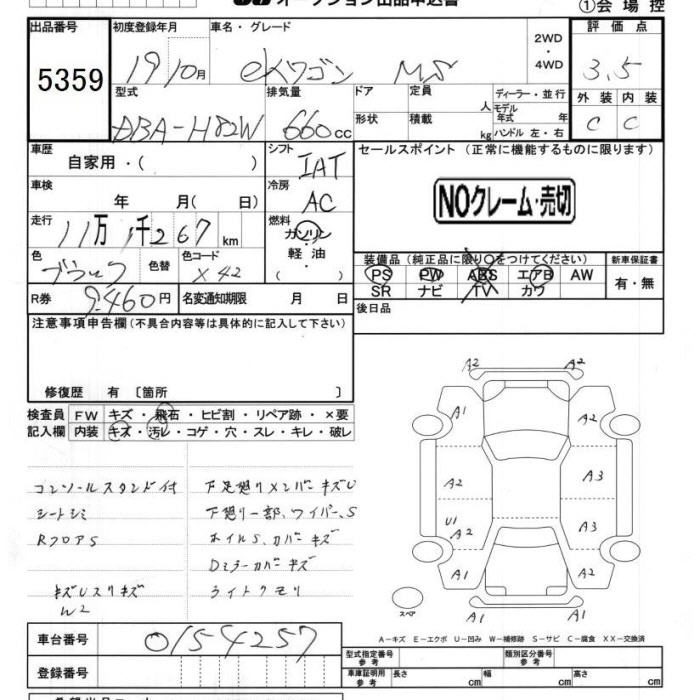 オークション出品申込書
①会場控
出品番号
5359
初度登録年月
19 10月
車名・グレード
eKワゴン MS
2WD
・
4WD
評価点
3.5
型式
DBA-H82W
排気量
660cc
ドア
形状
定員
人
積載
kg
ディーラー・並行
モデル
年式
年
ハンドル 左・右
外装
内装
C
C
車歴
自家用・( )
シフト
IAT
セールスポイント (正常に機能するものに限ります)
車検
年 月( 日)
冷房
AC
NOクレーム・売切
走行
11万1千267km
燃料
ガソリン
軽油
( )
色
ブラック
色替
色コード
X42
装備品(純正品に限り○をつけてください)
新車保証書
PS
PW
ABS
エアB
AW
SR
ナビ
TV
カワ
有・無
R券
9.460円
名変通知期限
月 日
後日品
注意事項申告欄(不具合内容等は具体的に記入して下さい)
修復歴 有 〔箇所 〕
検査員
記入欄
FW
キズ・飛石・ヒビ割・リペア跡・×要
内装
キズ・汚レ・コゲ・穴・スレ・キレ・破レ
コンソールスタンド付
シートシミ
RフロアS
キズUスリキズ
W2
下足廻りメンバーキズU
下廻り一部、ワイパーS
ホイルS、カバーキズ
Dミラーカバーキズ
ライトクモリ
A2
A2
A1
A2
A2
A3
U1
A2
A3
A1
A2
A1
A1
スペア
A-キズ E-エクボ U-凹み W-補修跡 S-サビ C-腐食 XX-交換済
車台番号
0154257
登録番号
型式指定番号
参考
類別区分番号
参考
車庫証明用
参考
長さ
cm
幅
cm
高さ
cm